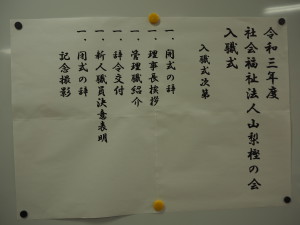 令和三年度
社会福祉法人山梨樫の会
入職式
入職式次第
一、開式の辞
一、理事長挨拶
一、管理職紹介
一、辞令交付
一、新人職員決意表明
一、閉式の辞
記念撮影